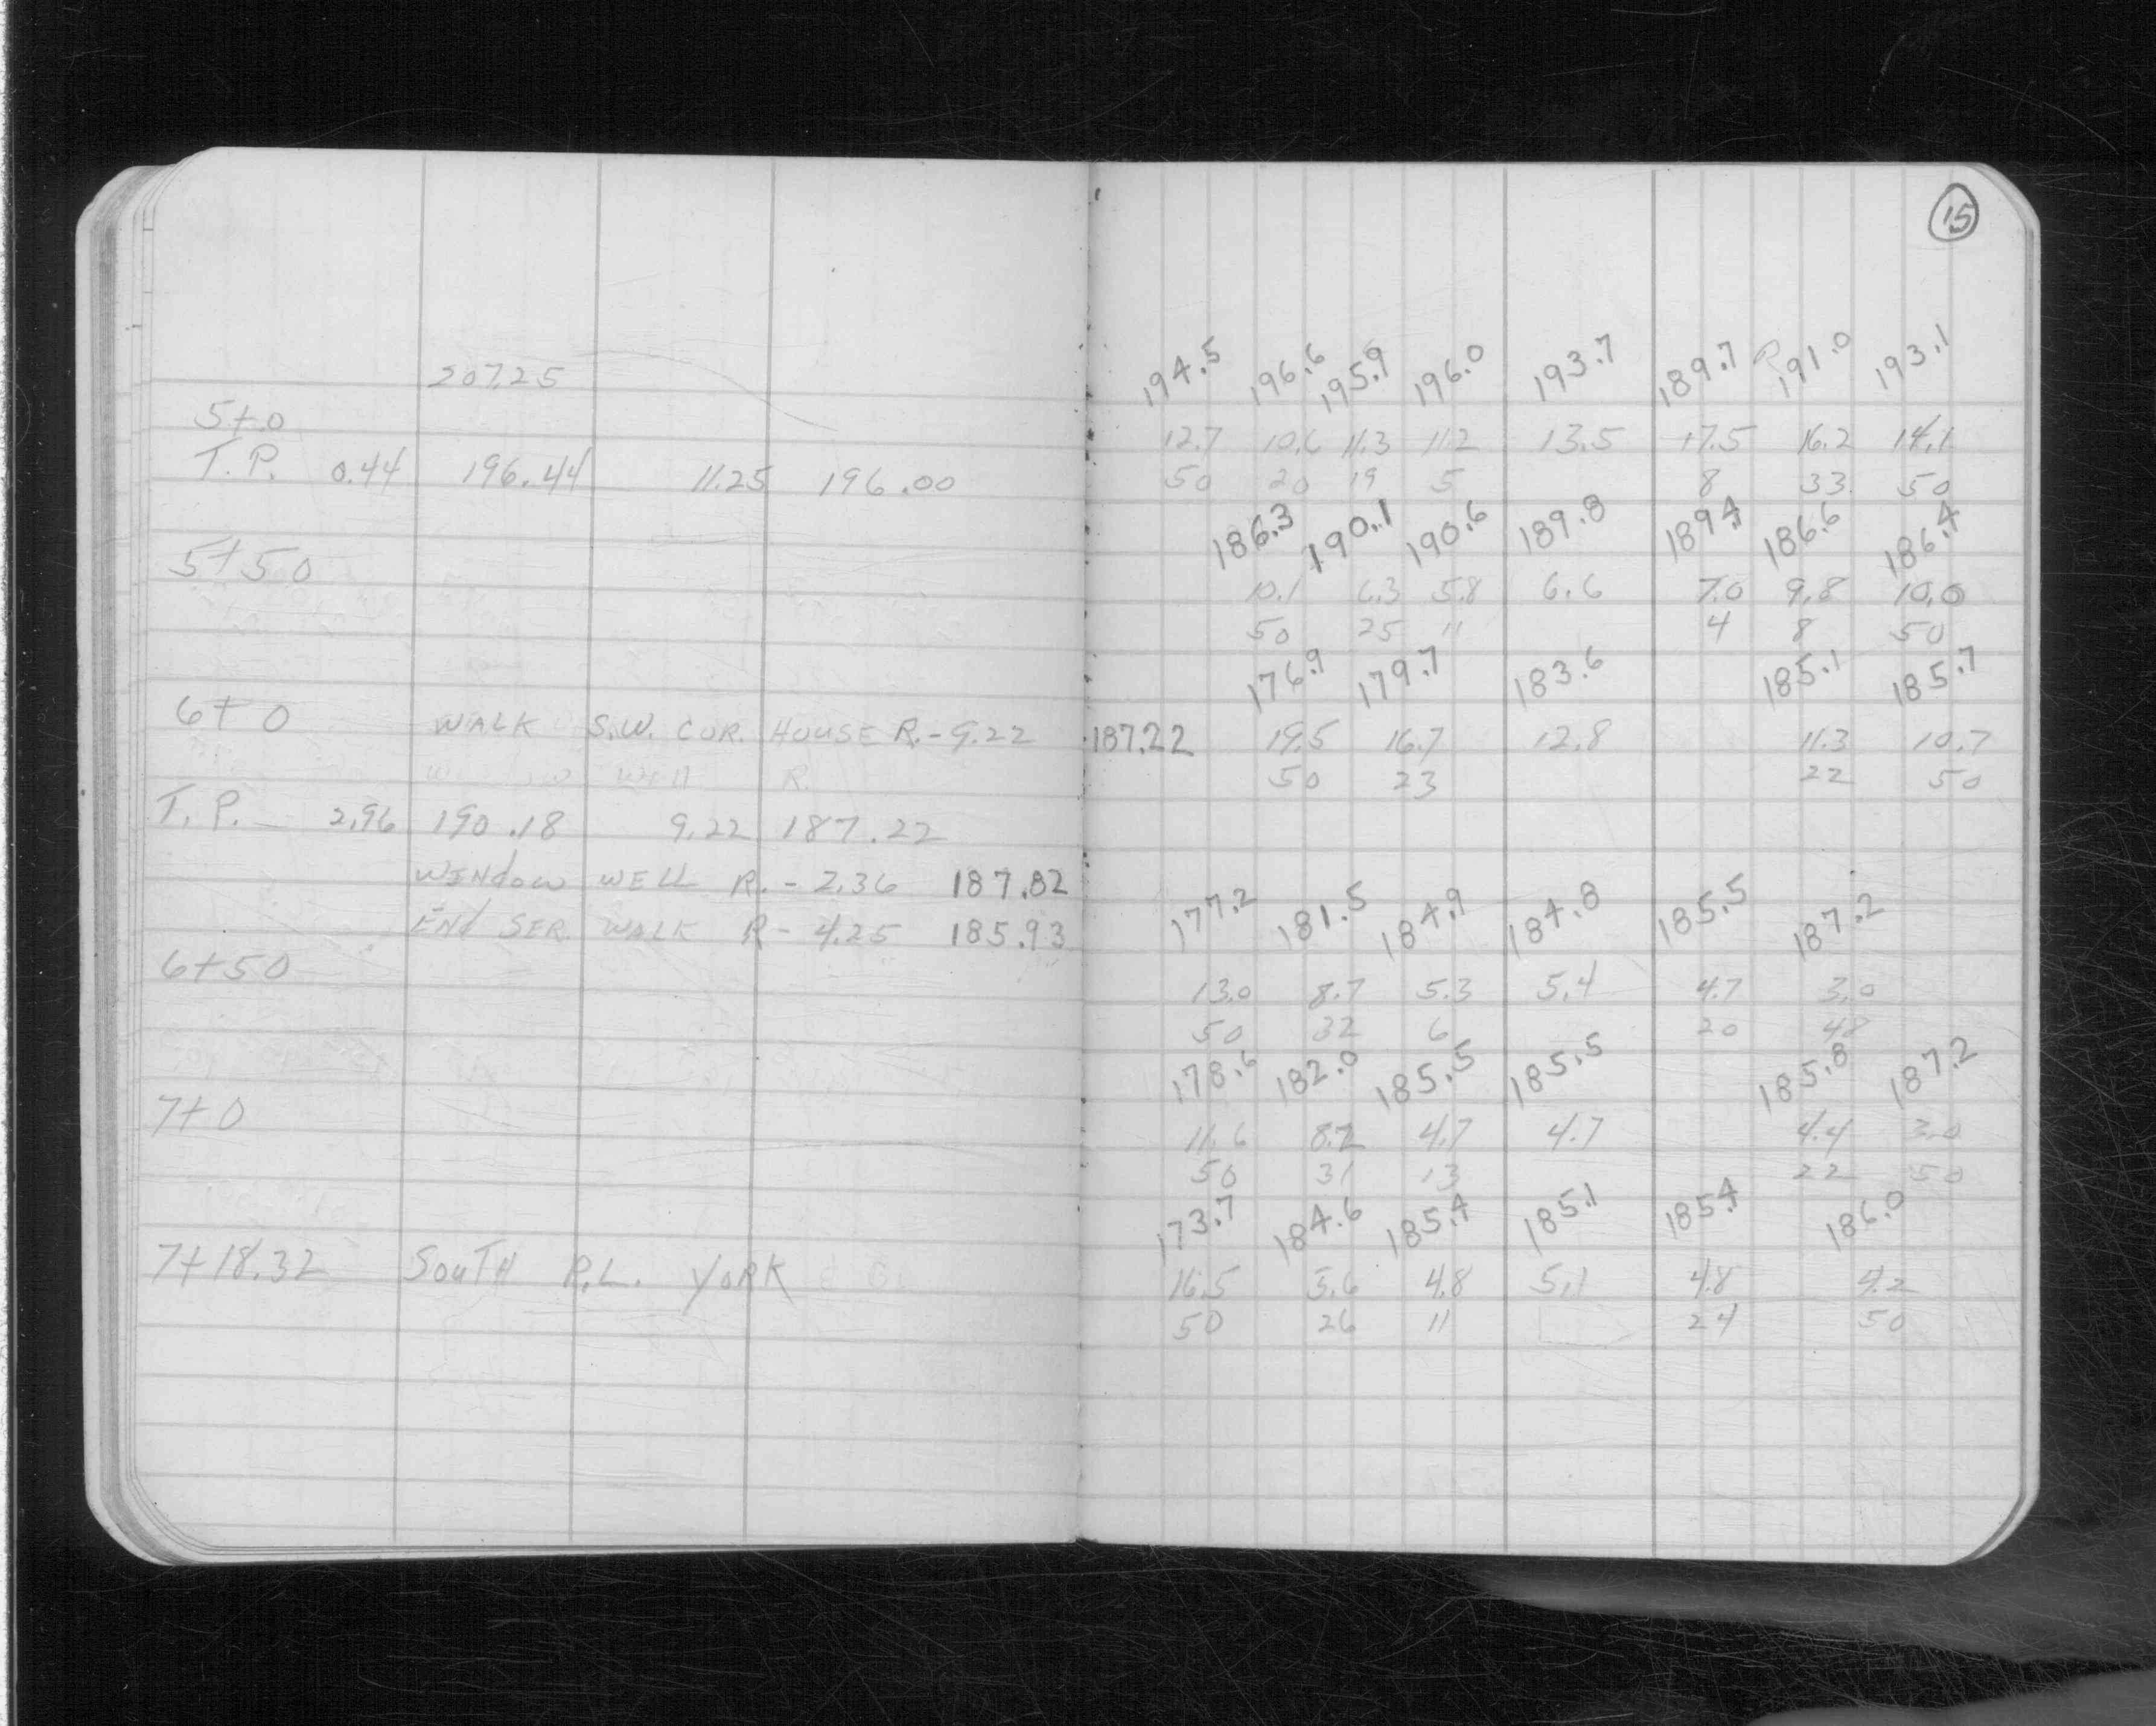 207.25
5+0
T.P. 0.44 196.44 11.25 196.00
5+50
6+0 WALK S.W. COR. HOUSE R.-9.22
WELL R.
T.P. 2.96 190.18 9.22 187.22
WINdOW WELL R.- 2.36 187.82
ENd SER. WALK R- 4.25 185.93
6+50
7+0
7+18.32 SOUTH P.L. YORK
15
194.5 196.6 195.9 196.0 193.7 189.7 R 191.0 193.1
12.7 10.6 11.3 11.2 13.5 17.5 16.2 14.1
50 20 19 5 8 33 50
186.3 190.1 190.6 189.8 189.4 186.6 186.4
10.1 6.3 5.8 6.6 7.0 9.8 10.0
50 25 11 4 8 50
176.9 179.7 183.6 185.1 185.7
187.22 19.5 16.7 12.8 11.3 10.7
50 23 22 50
177.2 181.5 184.9 184.8 185.5 187.2
13.0 8.7 5.3 5.4 4.7 3.0
50 32 6 20 48
178.6 182.0 185.5 185.5 185.8 187.2
11.6 8.2 4.7 4.7 4.4 3.0
50 31 13 22 50
173.7 184.6 185.4 185.1 185.4 186.0
16.5 5.6 4.8 5.1 4.8 4.2
50 26 11 24 50